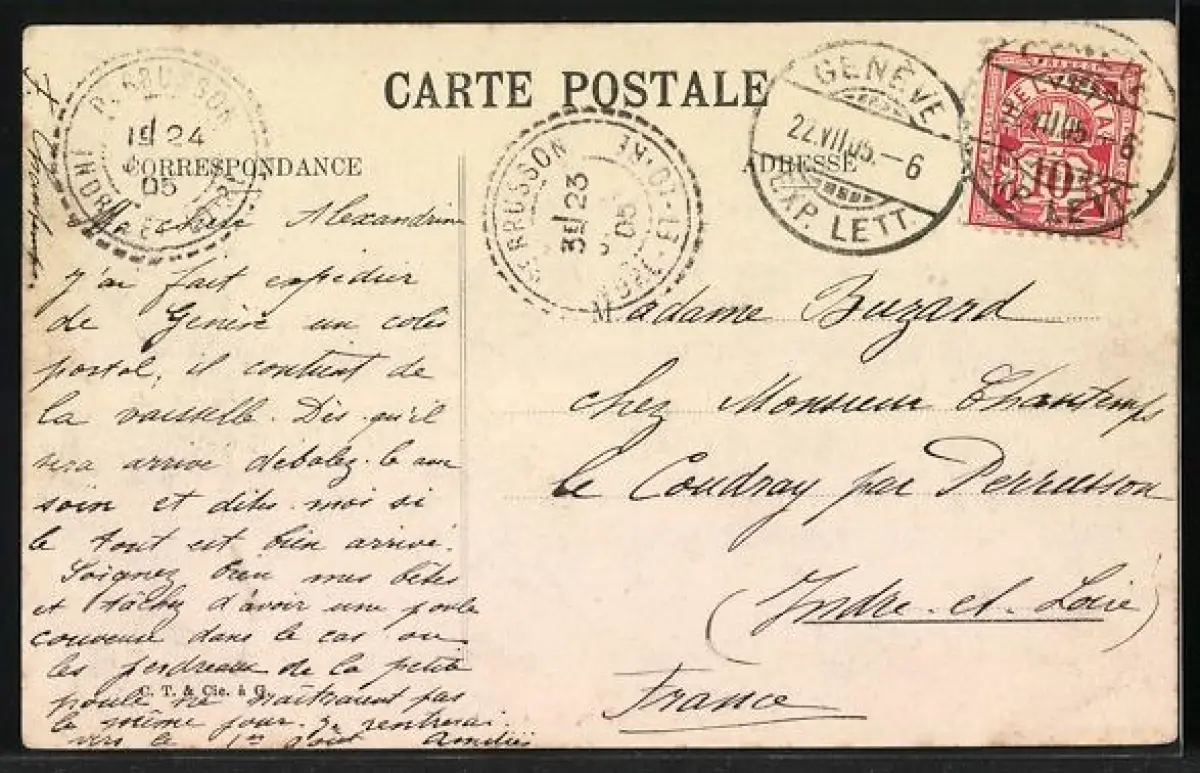 CARTE POSTALE
CORRESPONDANCE
ADRESSE
PERRUSSON
1E/24
05
INDRE
PERRUSSON
3E/23
05
INDRE-ET-LOIRE
GENÈVE
22.VII.05.-6
EXP. LETT.
HELVETIA
10
VII.05.-6
EXP. LETT.
Ma chère Alexandrine
J'ai fait expédier
de Genève un colis
postal, il contient de
la vaisselle. Dès qu'il
sera arrivé débalez-le avec
soin et dites-moi si
le tout est bien arrivé.
Soignez bien mes bêtes
et tâchez d'avoir une poule
couveuse dans le cas où
les perdreaux de la petite
poule ne naîtraient pas
le même jour. Je rentrerai
vers le 1er août Amitiés
C. T. & Cie. à G.
Madame Buzard
chez Monsieur Chantemps
le Coudray par Perrusson
(Indre-et-Loire)
France